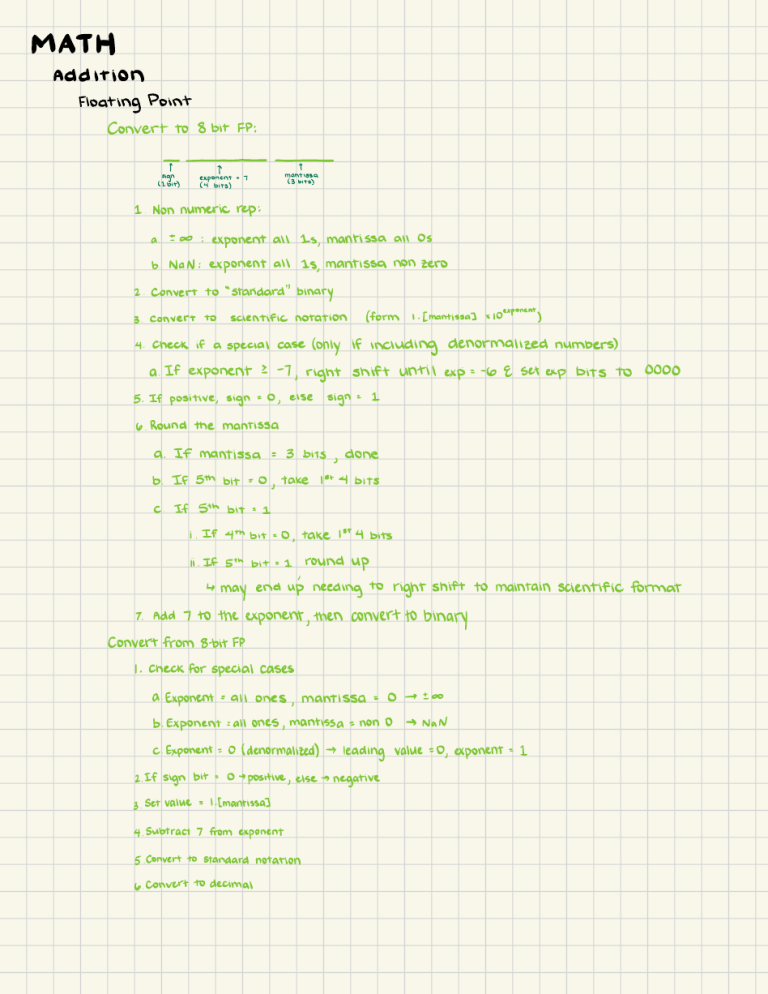 MATH
Addition
Floating Point
Convert to 8 bit FP:
sign exponent + 7 mantissa
(1 bit) (4 bits) (3 bits)
1 Non numeric rep:
a ±∞ : exponent all 1s, mantissa all 0s
b NaN: exponent all 1s, mantissa non zero
2 Convert to "standard" binary
3 Convert to scientific notation (form 1.[mantissa] x10^exponent)
4. Check if a special case (only if including denormalized numbers)
a. If exponent ≥ -7, right shift until exp = -6 & set exp bits to 0000
5. If positive, sign = 0, else sign = 1
6 Round the mantissa
a. If mantissa = 3 bits, done
b. If 5th bit = 0, take 1st 4 bits
c. If 5th bit = 1
i. If 4th bit = 0, take 1st 4 bits
ii. If 5th bit = 1 round up
↳ may end up needing to right shift to maintain scientific format
7. Add 7 to the exponent, then convert to binary
Convert from 8-bit FP
1. Check for special cases
a Exponent = all ones, mantissa = 0 → ±∞
b. Exponent = all ones, mantissa = non 0 → NaN
c Exponent = 0 (denormalized) → leading value = 0, exponent = 1
2. If sign bit = 0 → positive, else → negative
3 Set value = 1.[mantissa]
4 Subtract 7 from exponent
5 Convert to standard notation
6 Convert to decimal